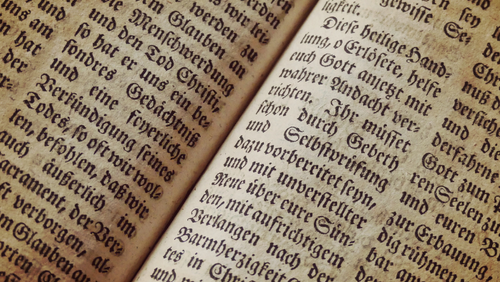 werden zu
Glauben an
Menschwerdung
und den Tod Christi,
so hat er uns ein be-
sondres Gedächtniß
und eine feyerliche
Verkündigung seines
Todes, so oft wir wol-
len, befohlen, daß wir
auch äußerlich im
acrament, der Ver-
ft verborgen, al-
n Glauben an
igkeit.
Diese heilige Hand-
lung, o Erlösete, helfe
euch Gott anjetzt mit
wahrer Andacht ver-
richten. Ihr müsset
schon durch Gebeth
und Selbstprüfung
dazu vorbereitet seyn,
und mit unverstellter
Reue über eure Sün-
den, mit aufrichtigem
Verlangen nach der
Barmherzigkeit
tes in Chris
und mi
gewisse
derfahrne
Gott zum
ren Seelen
und euren
zur Erbauung.
dig rühmen
bar